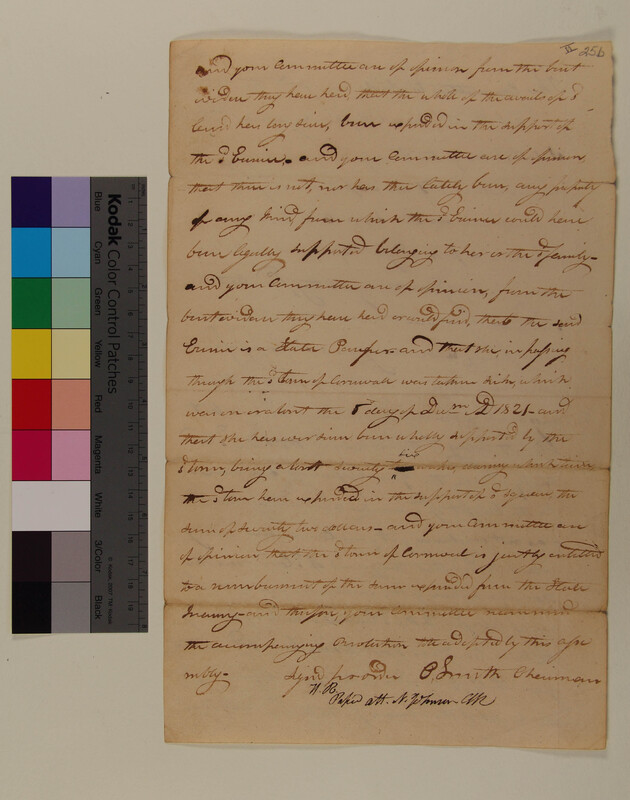 25b
and your Committee are of opinion from the best
eviden they have herd, that the whole of the avails of sd
land has long sinc, been expended in the support of
the sd Eunice, and your Committee are of opinion
that there is not, nor has ther lately been, any property
of any kind, from which the sd Eunice could have
been legally supported belonging to her or the sd family-
and your Committee are of opinion, from the
best evidence they have herd or could find, that the said
Eunice is a State Pauper and that she in passing
through the sd town of Cornwall was taken sick, which
was on or about the day of Decm AD 1821- and
that she has ever since been wholly supported by the
sd town, being about seventy weeks, during which time
the sd town have expended in the support of sd the
sum of seventy two dollars- and your Committee are
of opinion that the sd town of Cornwall is justly entitled
to a reimbursment of the sum expended from the State
Treasury- and therefore your Committee recommend
the accompanying resolution be adopted by this assembly-
Signd pr order P. Smith Chairman
H. R.
Passed att. N. Johnson Clk
Kodak Color Control Patches
Blue
Cyan
Green
Yellow
Red
Magenta
White
3/Color
Black